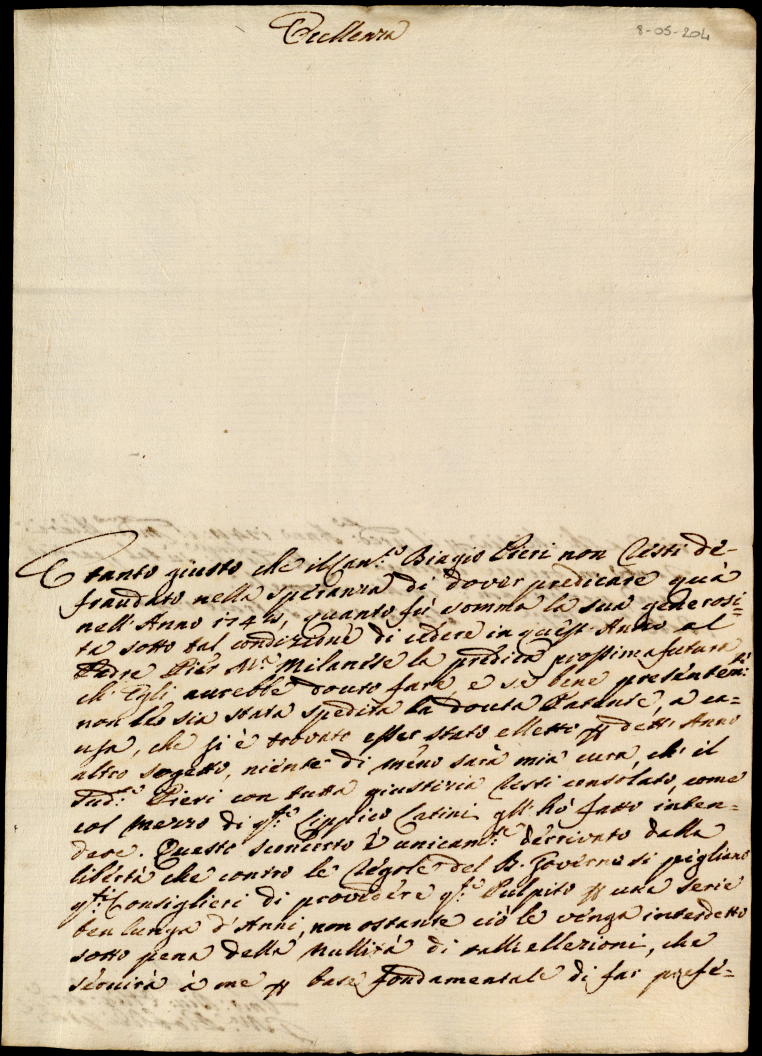 Eccellenza
8-05-204
E tanto giusto che il Can.co Biagio Pieri non resti de-
fraudato nella speranza di dover predicare quà
nell'Anno 1742, quanto fù somma la sua generosi=
tà sotto tal condizione di cedere in quest'Anno al
Padre Pier M.a Milanese la predica prossima futura
ch'Egli aurebbe douto fare, e se bene presentem:te
non le sia stata spedita la douta Patente, a ca=
usa, che si è trovato esser stato elletto p detto Anno
altro sogetto, niente di meno sarà mia cura, ch'il
Sud.o Pieri con tutta giustizia resti consolato, come
col mezzo di q.to Cipptico Catini gli hò fatto inten=
dere. Questo sconcerto è unicam.te derrivato dalla
libertà che contro le regole del B. Governo si pigliano
q.ti Consiglieri di provedere q.to Pulpito p una serie
ben lunga d'Anni, non ostante ciò le venga interdetto
sotto pena della nullità di tali ellezioni, che
seruirà à me p base fondamentale di far prefe=